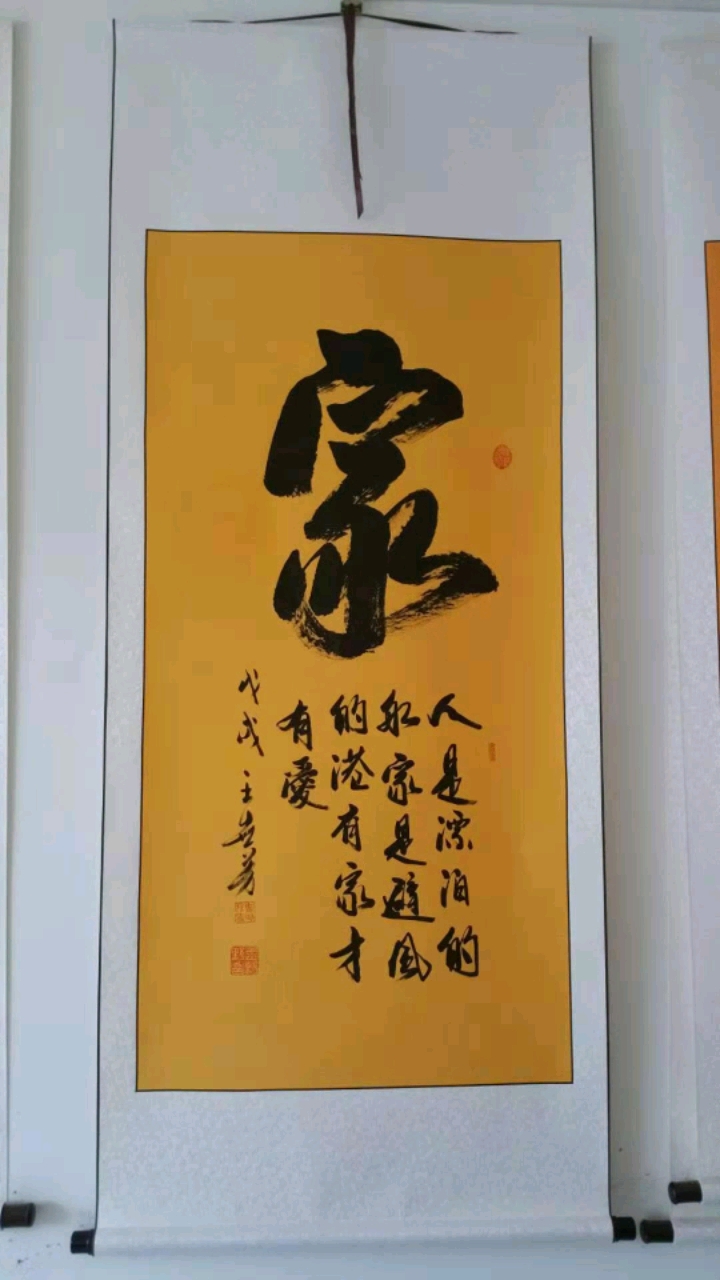 家
人是漂泊的
船家是避风
的港有家才
有愛
戊戌王